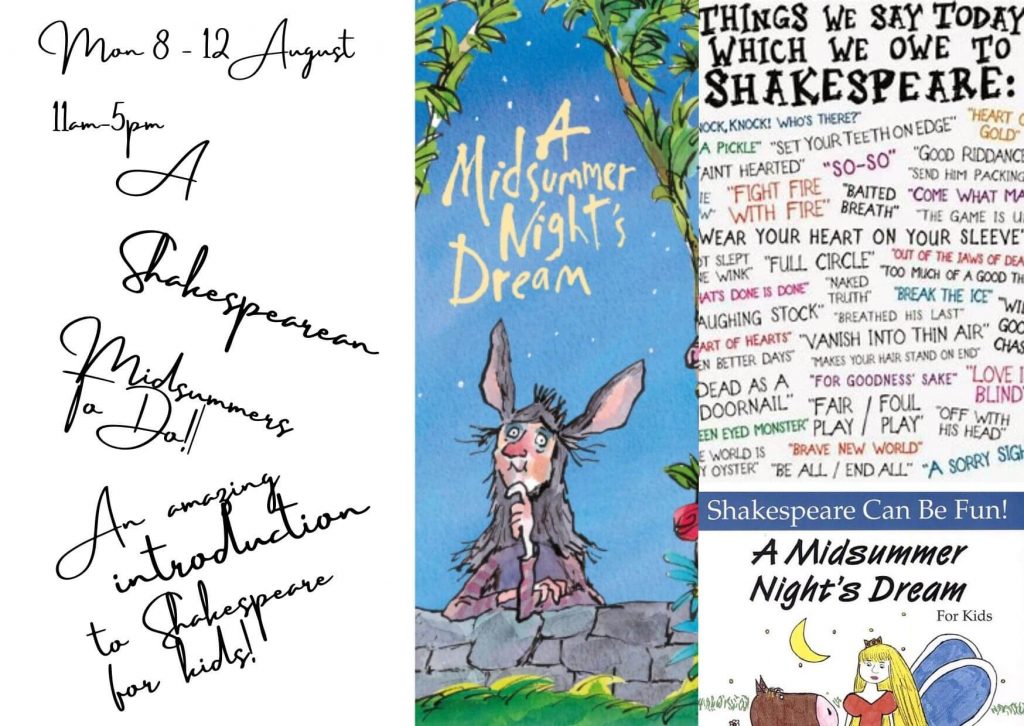 Mon 8 - 12 August
11am-5pm
A
Shakespearean
Midsummers
To Do!!
An amazing
introduction
to Shakespeare
for kids!
A
Midsummer
Night's
Dream
THINGS WE SAY TODAY
WHICH WE OWE TO
SHAKESPEARE:
NOCK, KNOCK! WHO'S THERE?" "HEART O
A PICKLE" "SET YOUR TEETH ON EDGE" GOLD"
AINT HEARTED" "SO-SO" "GOOD RIDDANCE
"SEND HIM PACKING
"FIGHT FIRE "BAITED "COME WHAT MA
WITH FIRE" BREATH" "THE GAME IS U
WEAR YOUR HEART ON YOUR SLEEVE"
OT SLEPT "FULL CIRCLE" "OUT OF THE JAWS OF DEA
NE WINK" "NAKED "TOO MUCH OF A GOOD TH
HAT'S DONE IS DONE" TRUTH" "BREAK THE ICE" "WIL
AUGHING STOCK" "BREATHED HIS LAST" GOO
ART OF HEARTS" "VANISH INTO THIN AIR" CHAS
EN BETTER DAYS" "MAKES YOUR HAIR STAND ON END"
DEAD AS A "FOR GOODNESS' SAKE" "LOVE I
DOORNAIL" "FAIR / FOUL BLIND"
PLAY / PLAY" "OFF WITH
EEN EYED MONSTER" HIS HEAD"
E WORLD IS "BRAVE NEW WORLD"
Y OYSTER" "BE ALL / END ALL" "A SORRY SIGH
Shakespeare Can Be Fun!
A Midsummer
Night's Dream
For Kids